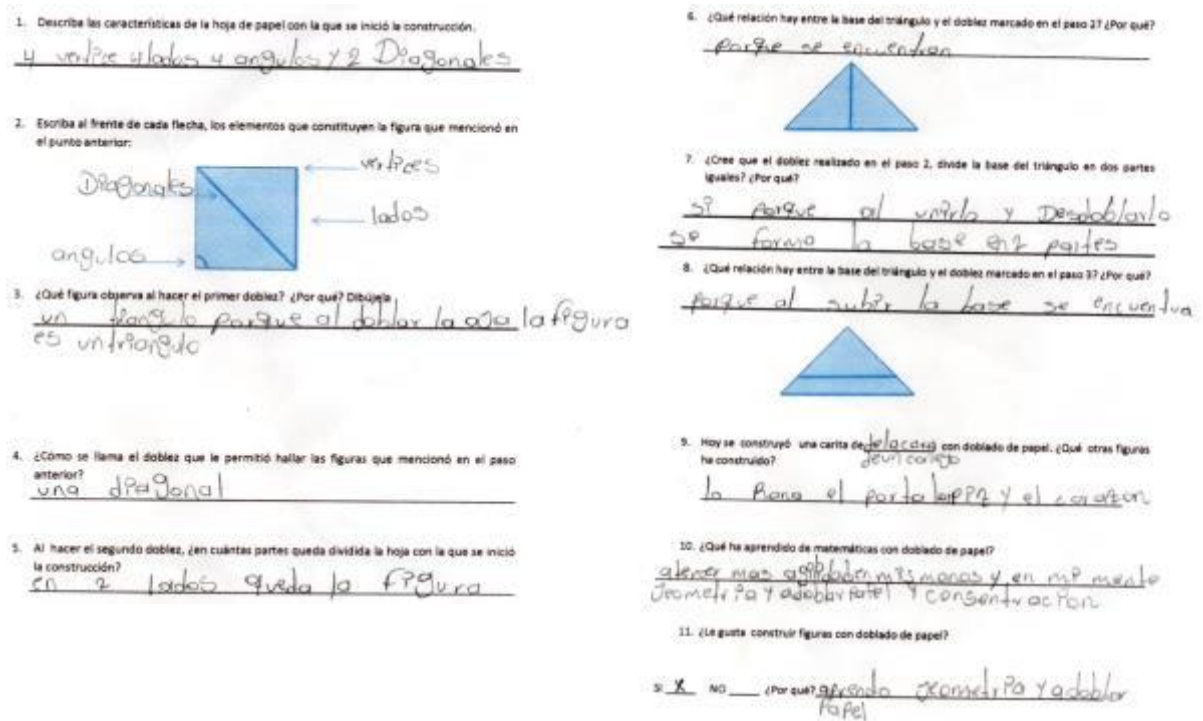 1. Describa las características de la hoja de papel con la que se inició la construcción.
4 vertice 4 lados 4 angulos y 2 Diagonales
2. Escriba al frente de cada flecha, los elementos que constituyen la figura que mencionó en
el punto anterior:
vertices
Diagonales
lados
angulos
3. ¿Qué figura observa al hacer el primer doblez? ¿Por qué? Dibújela
un triangulo porque al doblar la oja la figura
es un triangulo
4. ¿Cómo se llama el doblez que le permitió hallar las figuras que mencionó en el paso
anterior?
una diagonal
5. Al hacer el segundo doblez, ¿en cuántas partes queda dividida la hoja con la que se inició
la construcción?
en 2 lados queda la figura
6. ¿Qué relación hay entre la base del triángulo y el doblez marcado en el paso 2? ¿Por qué?
porque se encuentran
7. ¿Cree que el doblez realizado en el paso 2, divide la base del triángulo en dos partes
iguales? ¿Por qué?
si porque al unirlo y Desdoblarlo
se formo la base en 2 partes
8. ¿Qué relación hay entre la base del triángulo y el doblez marcado en el paso 3? ¿Por qué?
porque al subir la base se encuentva
9. Hoy se construyó una carita de de la cara con doblado de papel. ¿Qué otras figuras
de un conejo
ha construido?
la Rana el porta lapiz y el corazon
10. ¿Qué ha aprendido de matemáticas con doblado de papel?
a tener mas agilidad en mis manos y en mi mente
Jeometria y a doblar Papel y consentracion
11. ¿Le gusta construir figuras con doblado de papel?
SI X NO ____ ¿Por qué? aprendo Jeometria y a doblar
Papel